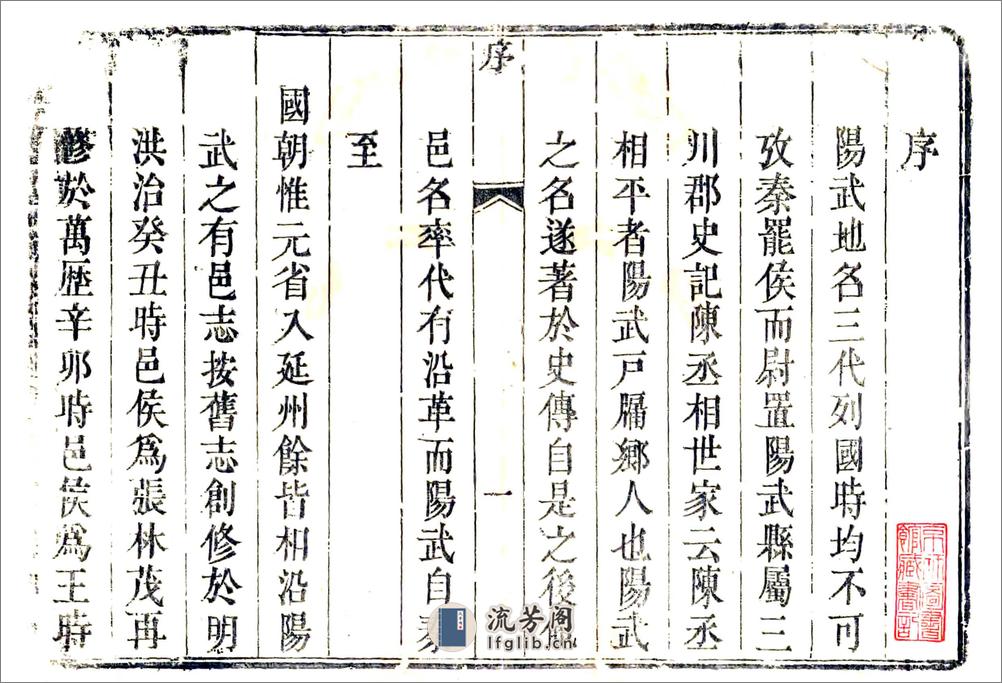 序
陽武地名三代列國時均不可
攷秦罷侯而尉置陽武縣屬三
川郡史記陳丞相世家云陳丞
相平者陽武戶牖鄉人也陽武
之名遂著於史傳自是之後
序
一
邑名率代有沿革而陽武自
至
國朝惟元省入延州餘皆相沿陽
武之有邑志按舊志創修於明
洪治癸丑時邑侯爲張林茂再
於萬歷辛卯時邑侯爲王時
流芳阁
lfglib.cn